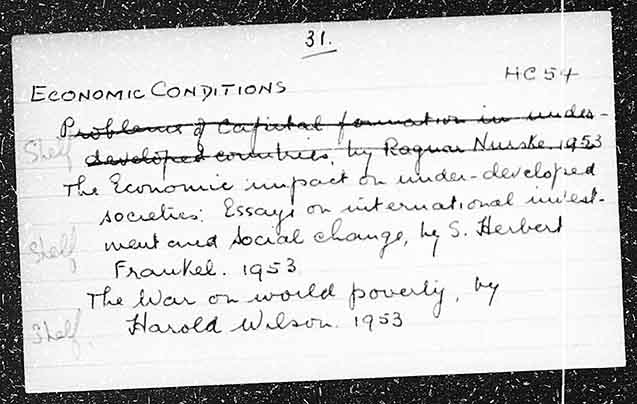 31.
HC 54
ECONOMIC CONDITIONS
Problems of Capital formation in under-
Shelf developed countries, by Ragnar Nurske. 1953
The Economic impact on under-developed
societies: Essays on international invest-
Shelf ment and social change, by S. Herbert
Frankel. 1953
The War on world poverty, by
Shelf Harold Wilson. 1953